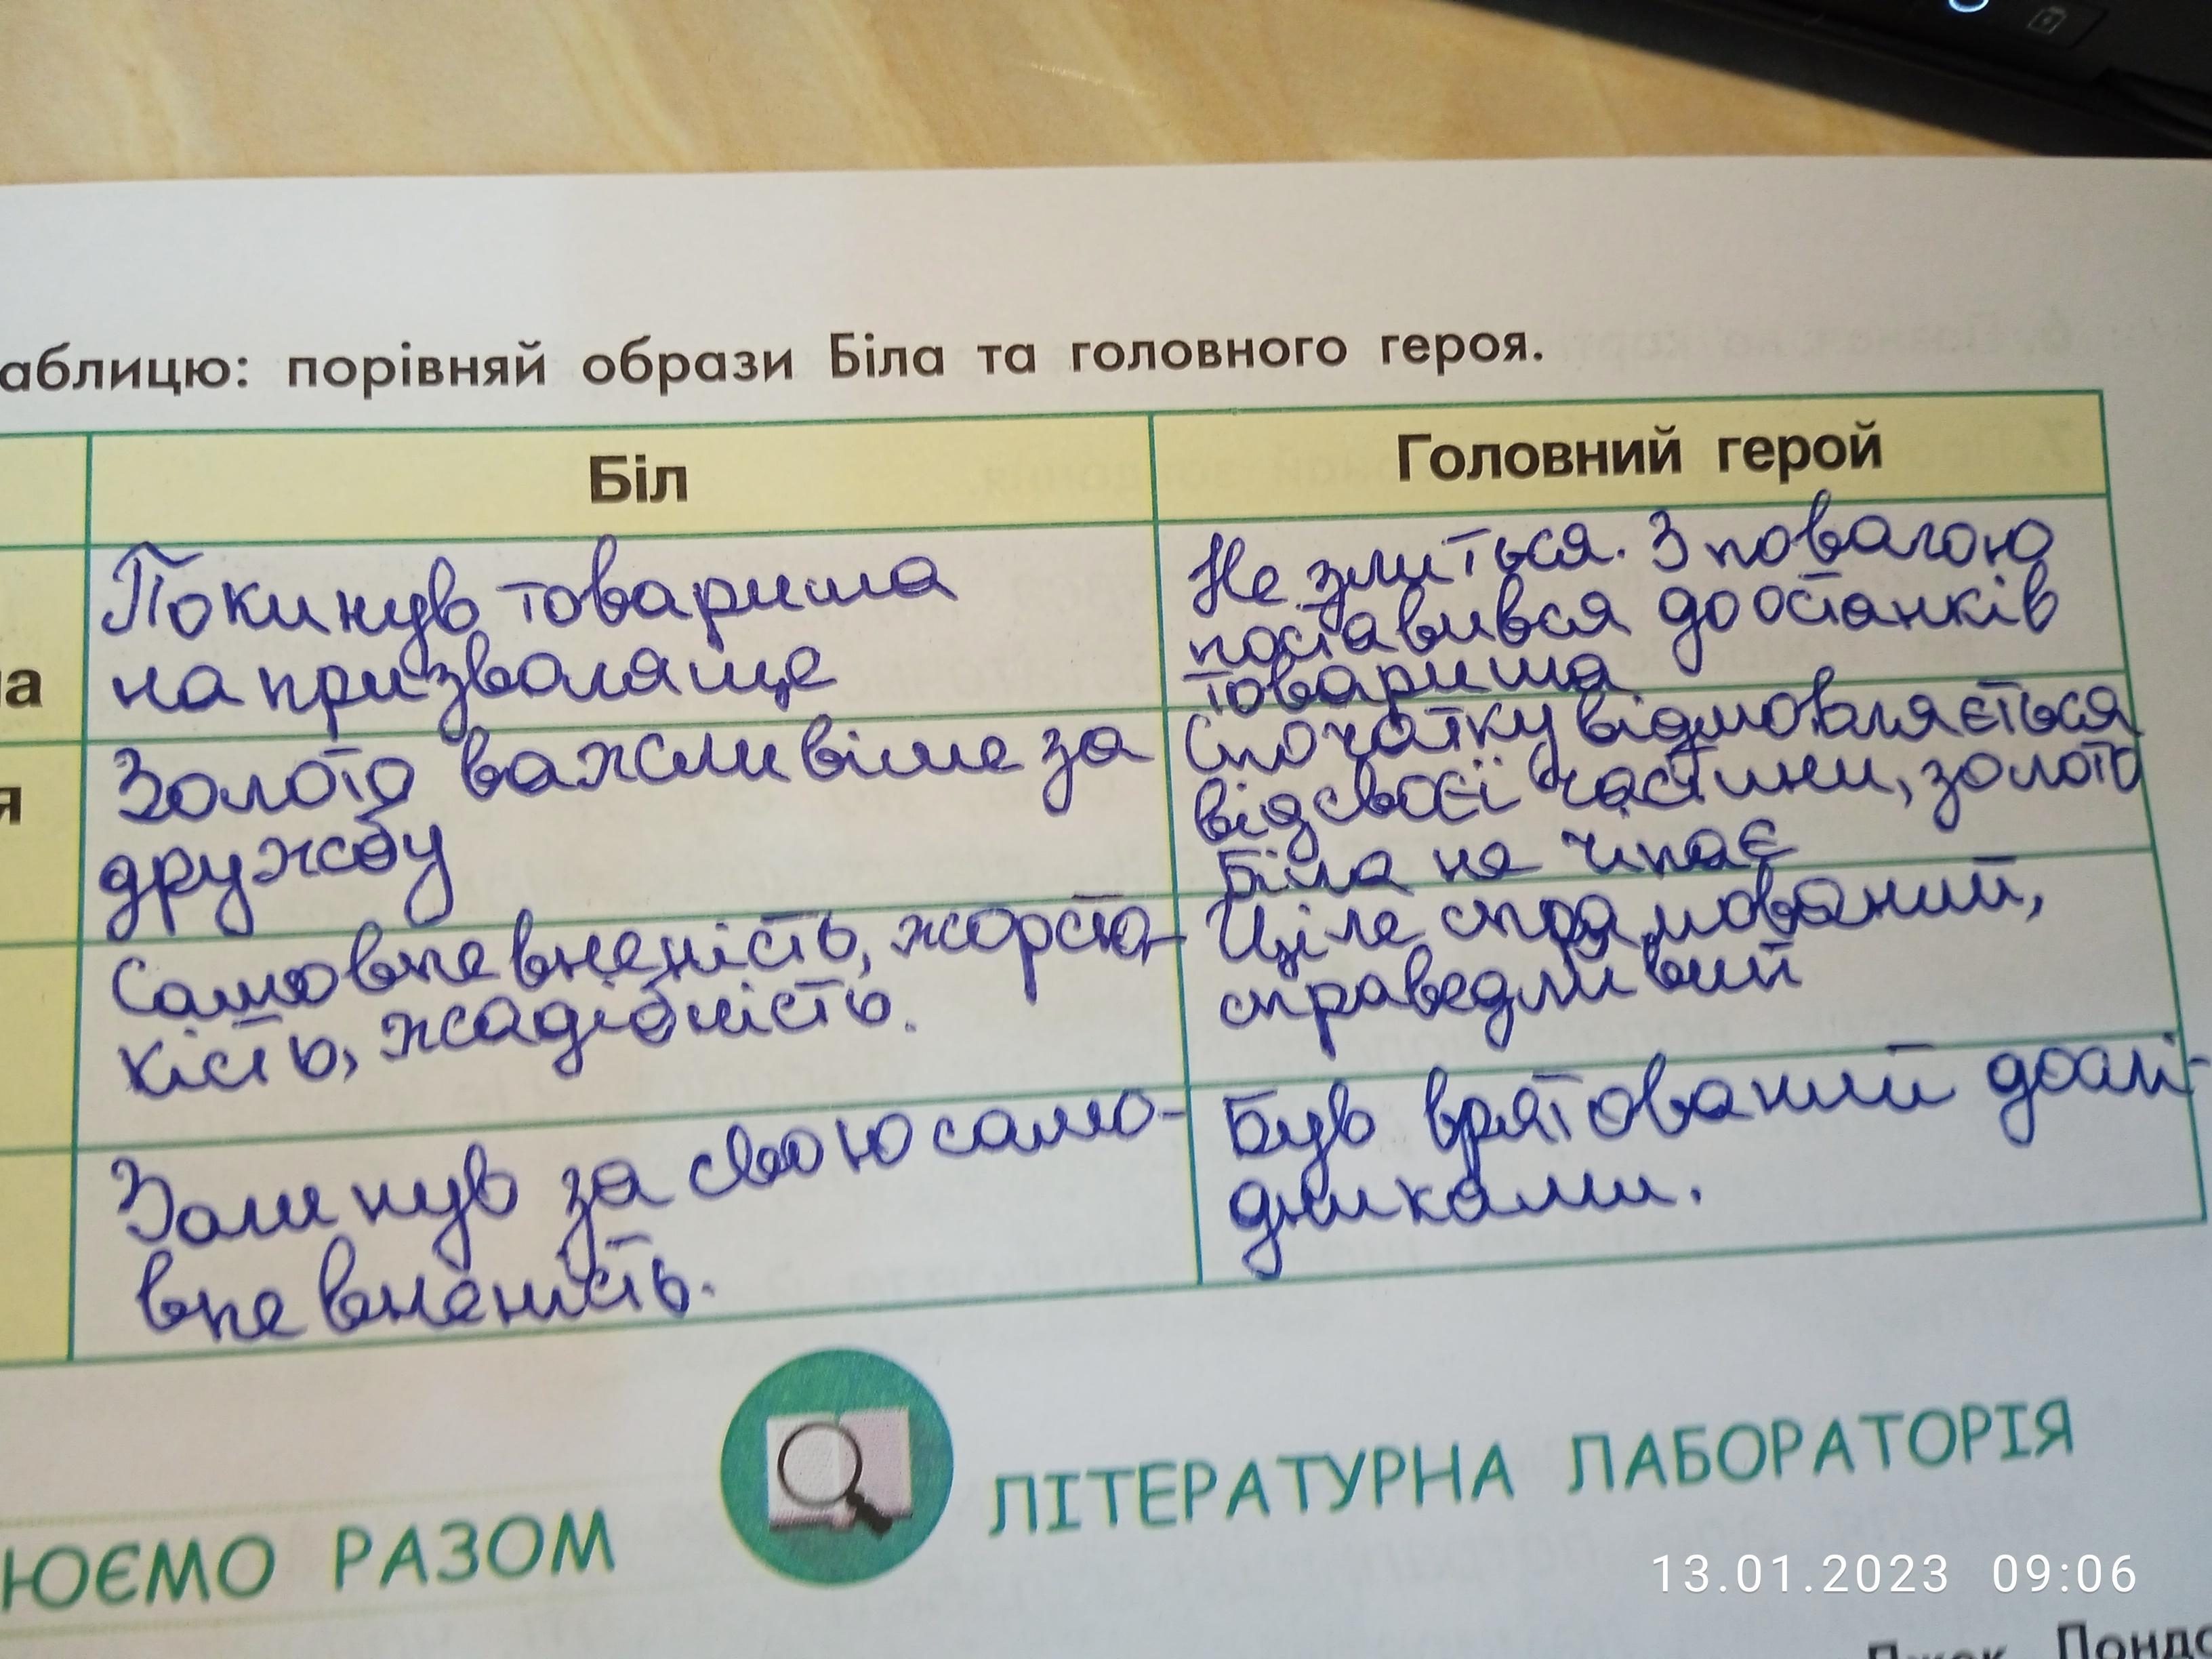 аблицю: порівняй образи Біла та головного героя.
Біл
Головний герой
Покинув товариша
на призволяще
Не злиться. З повагою
поставився до останків
товариша
ла
Золото важливіше за
дружбу
Спочатку відмовляється
від своєї частини, золото
Біла не чіпає
я
Самовпевненість, жорсто-
кість, жадібність.
Цілеспрямований,
справедливий
Загинув за свою само-
впевненість.
Був врятований дослі-
дниками.
ЮЄМО РАЗОМ
ЛІТЕРАТУРНА ЛАБОРАТОРІЯ
13.01.2023 09:06
Джек Лондо